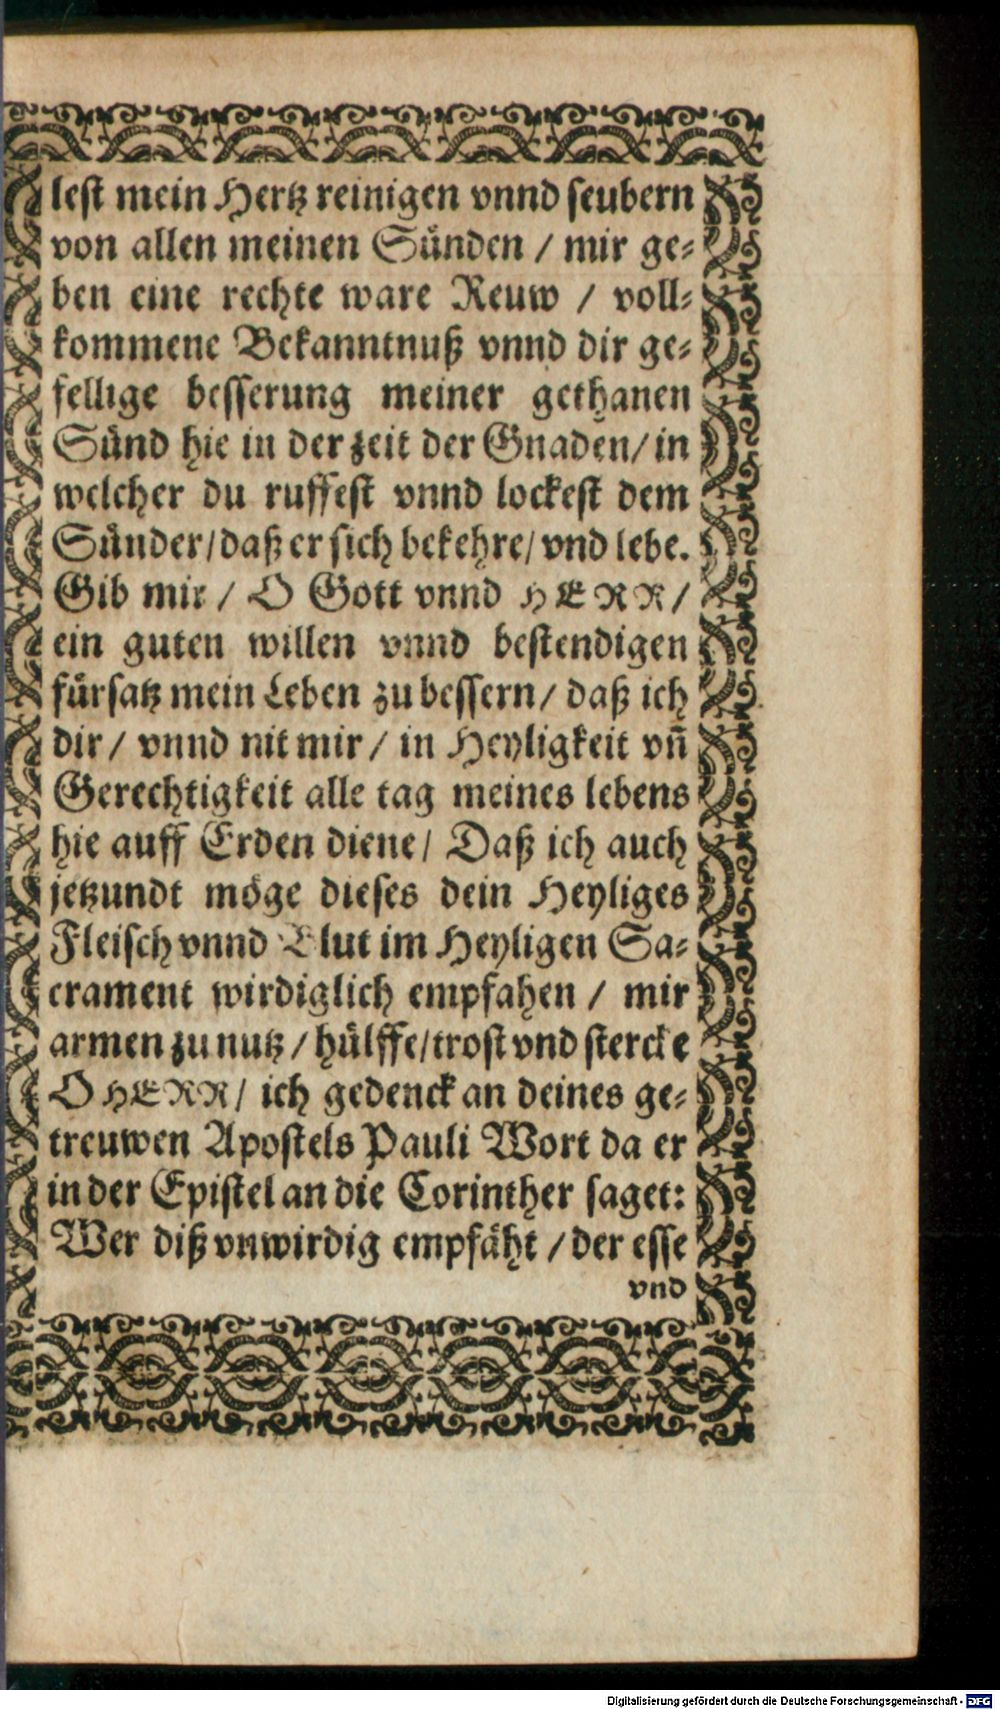 lest mein Hertz reinigen vnnd seubern
von allen meinen Sünden / mir ge-
ben eine rechte ware Reuw / voll-
kommene Bekanntnuß vnnd dir ge-
fellige besserung meiner gethanen
Sünd hie in der zeit der Gnaden / in
welcher du ruffest vnnd lockest dem
Sünder / daß er sich bekehre / vnd lebe.
Gib mir / O Gott vnnd HERR /
ein guten willen vnnd bestendigen
fürsatz mein Leben zu bessern / daß ich
dir / vnnd nit mir / in Heyligkeit vñ
Gerechtigkeit alle tag meines lebens
hie auff Erden diene / Daß ich auch
jetzundt möge dieses dein Heyliges
Fleisch vnnd Blut im Heyligen Sa-
crament wirdiglich empfahen / mir
armen zu nutz / hülffe / trost vnd stercke
O HERR / ich gedenck an deines ge-
treuwen Apostels Pauli Wort da er
in der Epistel an die Corinther saget:
Wer diß vnwirdig empfäht / der esse
vnd
Digitalisierung gefördert durch die Deutsche Forschungsgemeinschaft - DFG